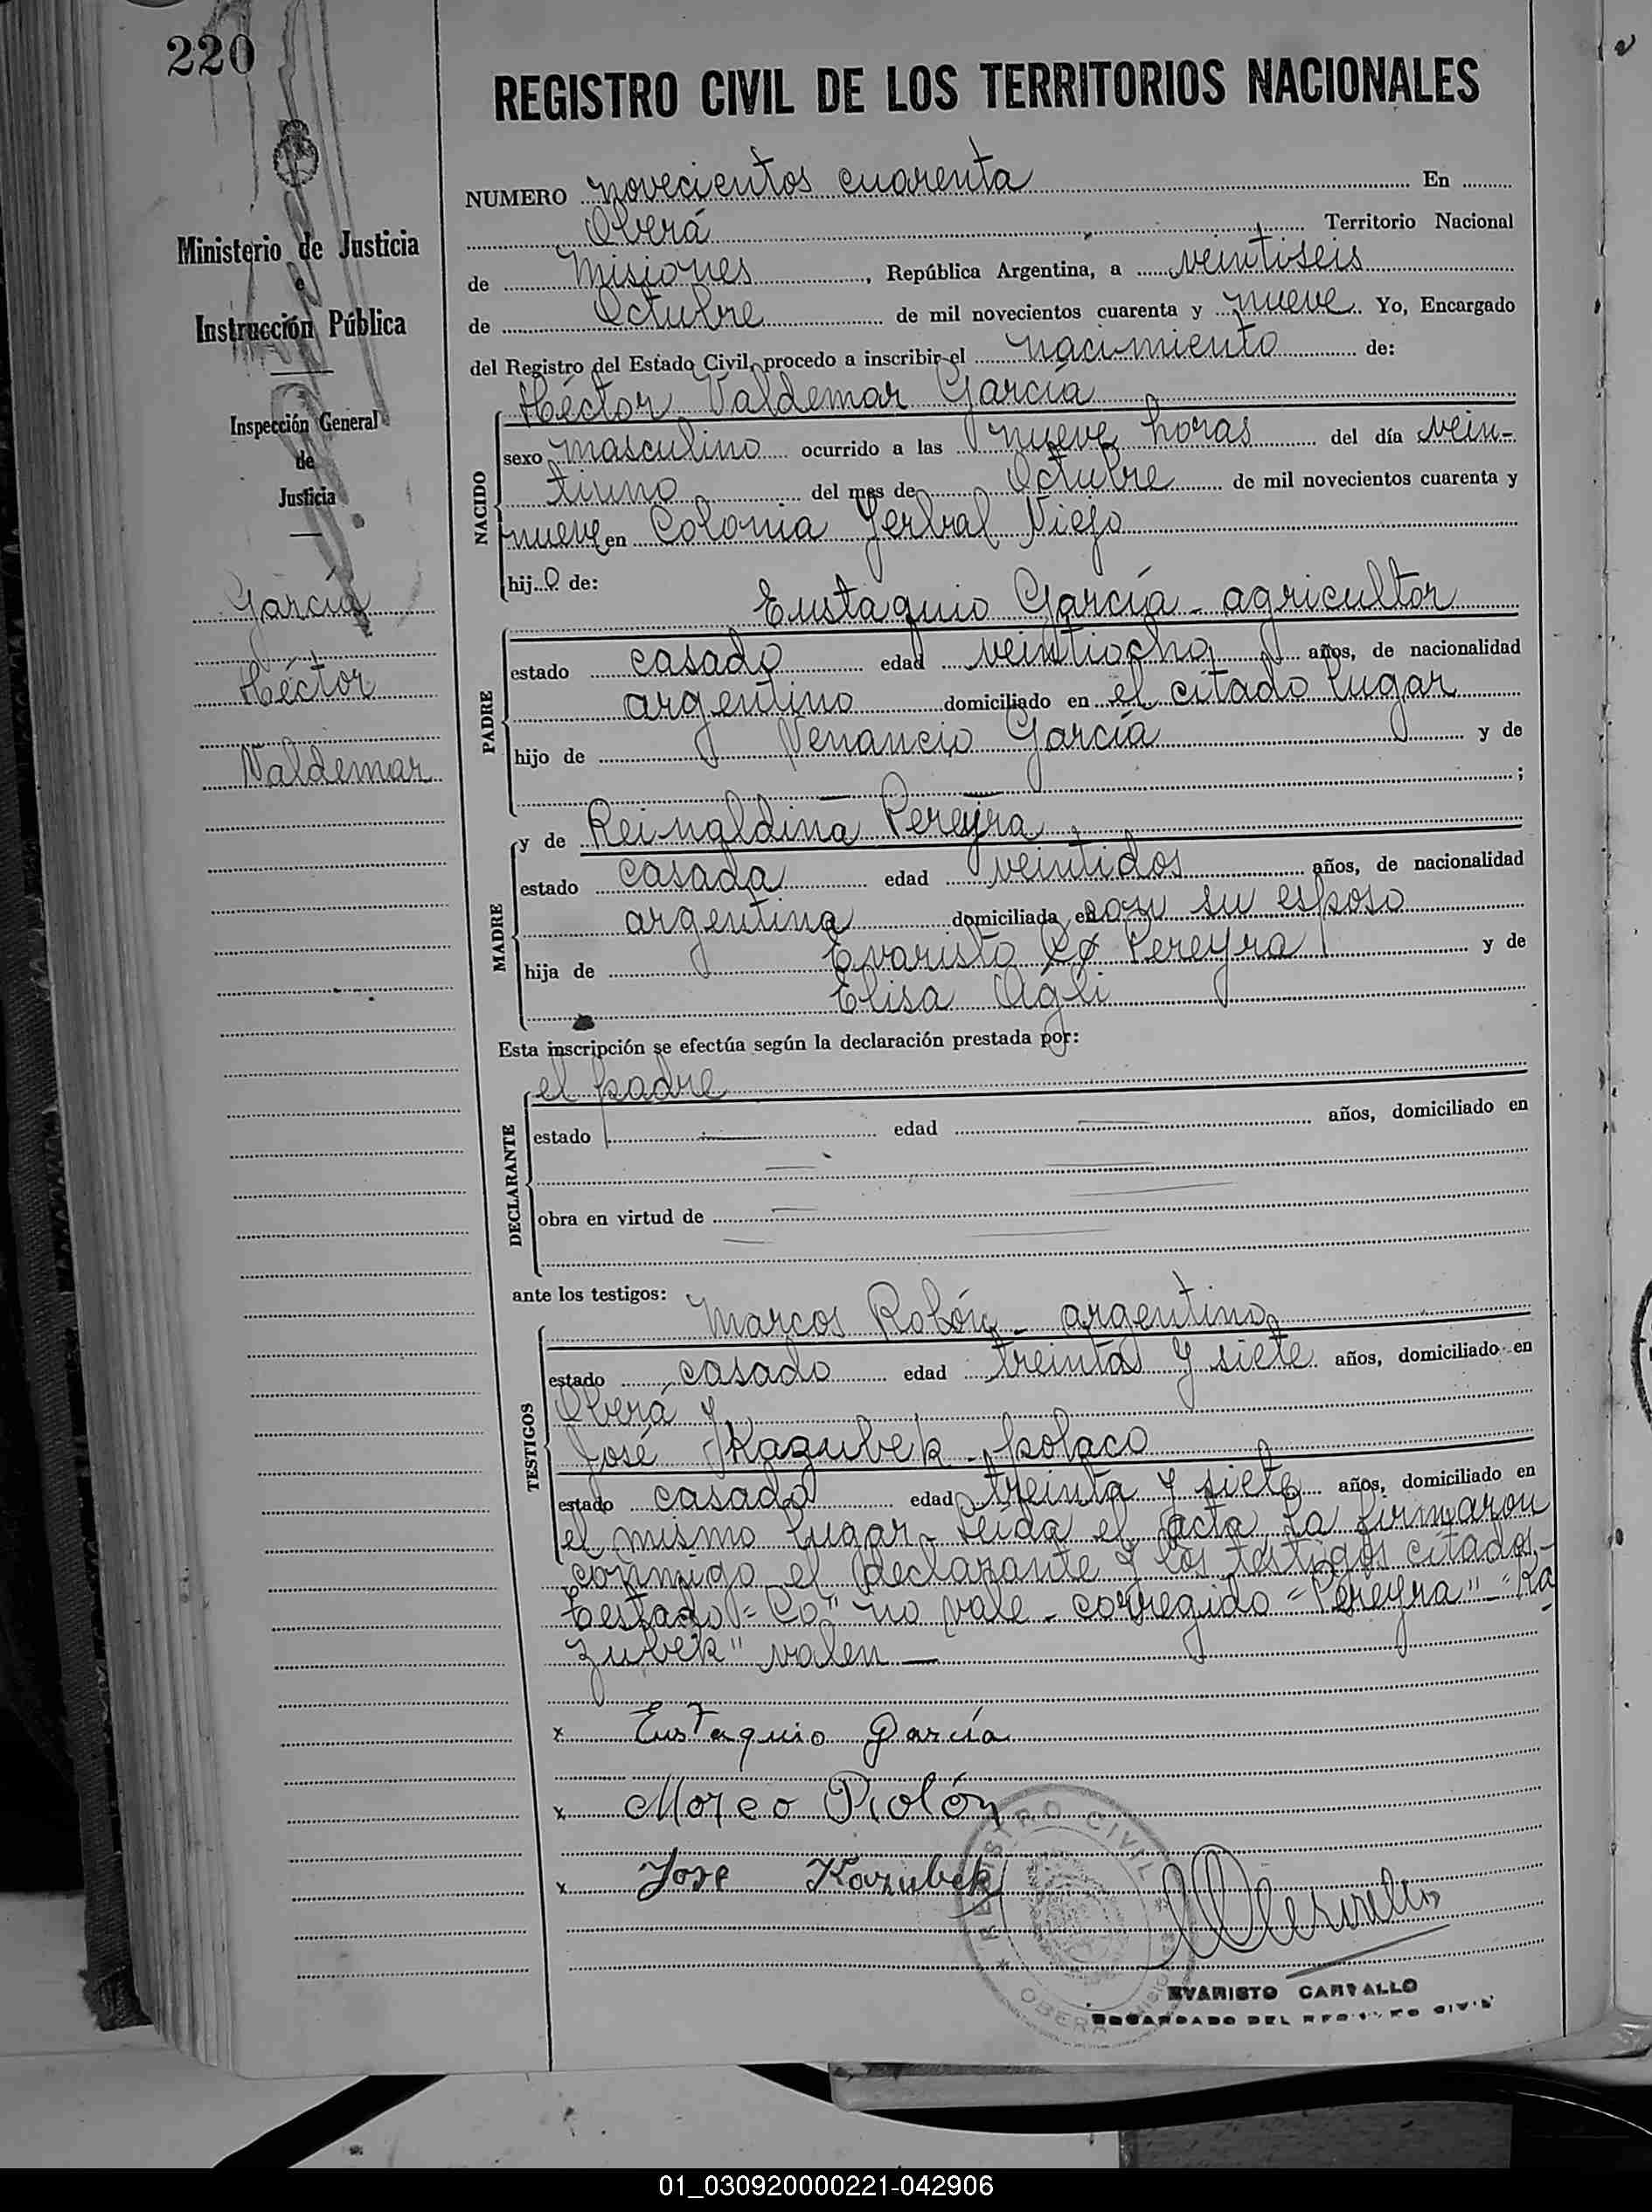 220
REGISTRO CIVIL DE LOS TERRITORIOS NACIONALES
Ministerio de Justicia
e
Instrucción Pública
Inspección General
de
Justicia
García
Héctor
Valdemar
NUMERO novecientos cuarenta En
Oberá Territorio Nacional
de Misiones, República Argentina, a veintiseis
de Octubre de mil novecientos cuarenta y nueve. Yo, Encargado
del Registro del Estado Civil, procedo a inscribir el nacimiento de:
Héctor Valdemar García
NACIDO
sexo masculino ocurrido a las nueve horas del día vein-
tiuno del mes de Octubre de mil novecientos cuarenta y
nueve en Colonia Yerbal Viejo
hijo de:
Eustaquio García - agricultor
PADRE
estado casado edad veintiocho años, de nacionalidad
argentino domiciliado en el citado lugar
hijo de Venancio García y de
;
y de Reinaldina Pereyra
MADRE
estado casada edad veintidos años, de nacionalidad
argentina domiciliada en con su esposo
hija de Evaristo Pereyra y de
Elisa Agli
Esta inscripción se efectúa según la declaración prestada por:
el padre
DECLARANTE
estado edad años, domiciliado en
obra en virtud de
ante los testigos:
Marcos Rolón - argentino
TESTIGOS
estado casado edad treinta y siete años, domiciliado en
Oberá y
José Kazubek - polaco
estado casado edad treinta y siete años, domiciliado en
el mismo lugar. Leída el acta la firmaron
conmigo el declarante y los testigos citados.-
Testado="Co" no vale - corregido="Pereyra"-"Ka
zubek" valen —
x Eustaquio García
x Marco Rolón
x Jose Kazubek
REGISTRO CIVIL
OBERA MISIONES
EVARISTO CARVALLO
ENCARGADO DEL REGISTRO CIVIL
01_030920000221-042906